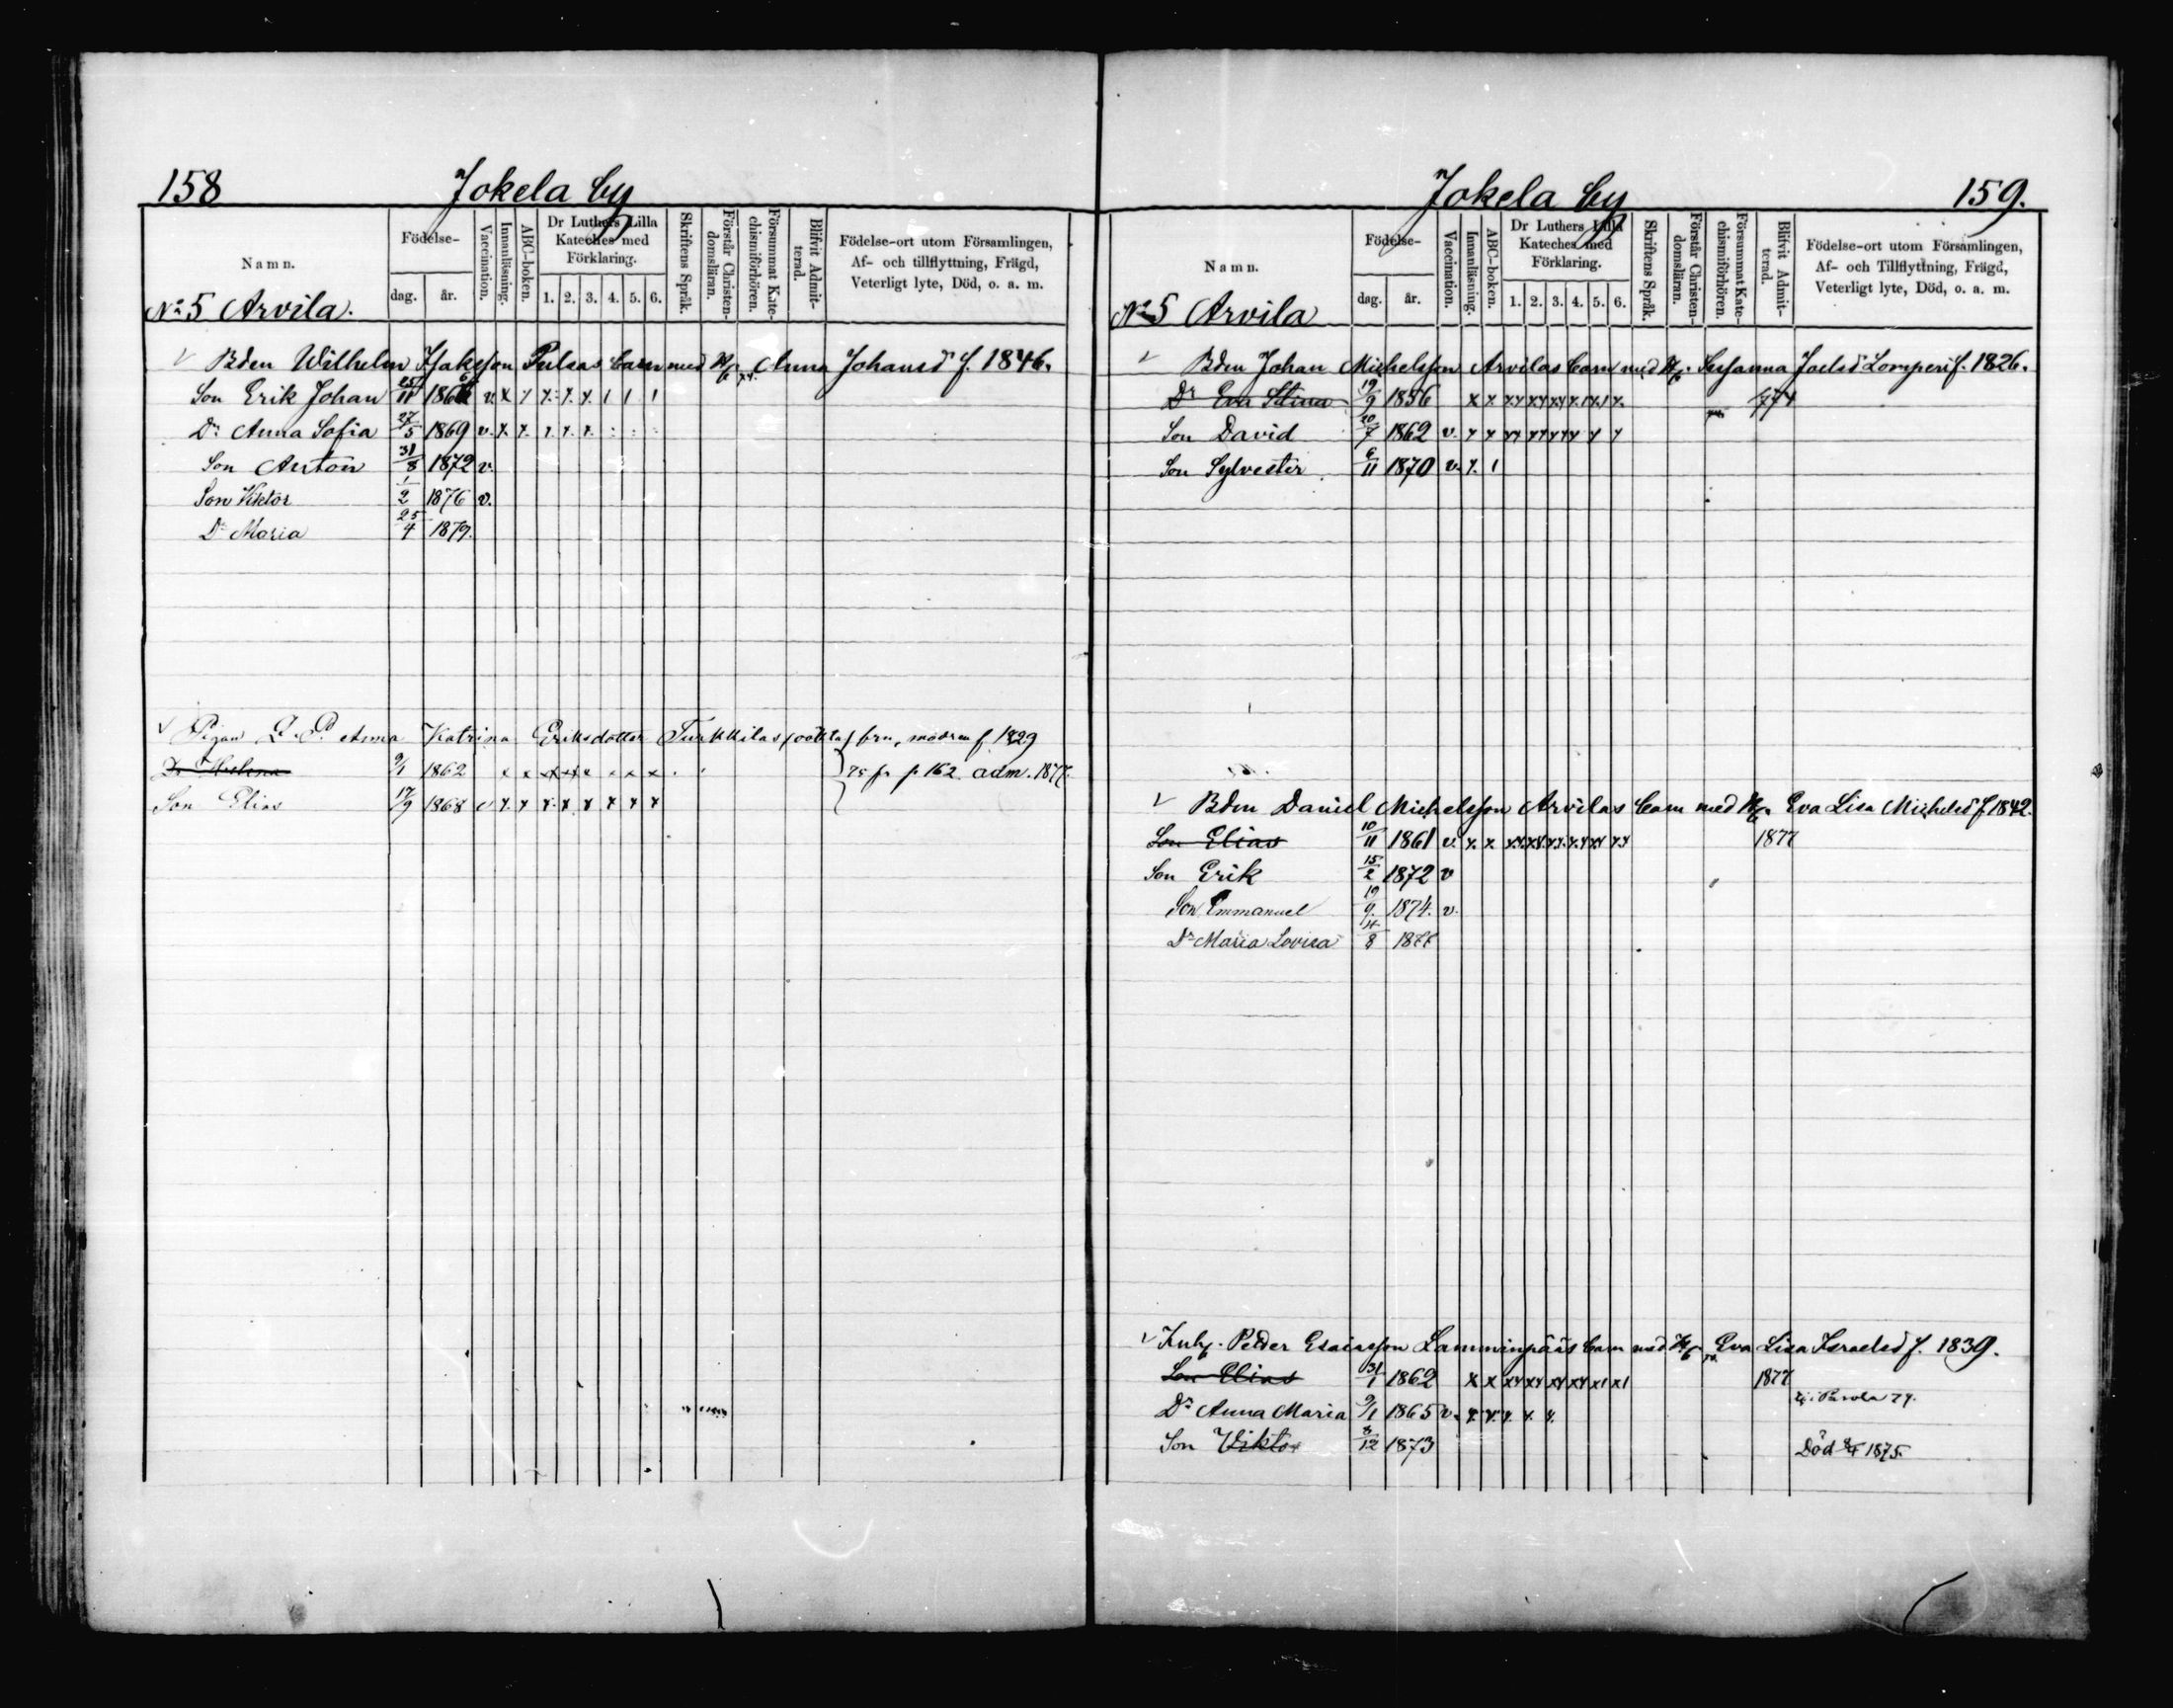 158 Jokela by
Namn.
Födelse-
dag. år.
Vaccination.
Innanläsning.
ABC-boken.
Dr Luthers Lilla Kateches med Förklaring.
1. 2. 3. 4. 5. 6.
Skriftens Språk.
Förstår Christendomsläran.
Försummat Katechismiförhören.
Blifvit Admitterad.
Födelse-ort utom Församlingen,
Af- och tillflyttning, Frägd,
Veterligt lyte, Död, o. a. m.
No 5 Arvila.
Bden Wilhelm Isaksson Pulsas barn med H. Anna Johansd f. 1846.
Son Erik Johan 25/11 186 v. x
Dr Anna Sofia 27/5 1869 v. x
Son Anton 31/8 1872 v.
Son Viktor 1/2 1876 v.
Dr Maria 25/4 1879.
Pigan Anna Katrina Eriksdotter Turkkilas oäkta brn, modren f. 1829
Dr Helena 9/1 1862 x x x x x x x x 75 fr p. 162. adm. 1877.
Son Elias 17/9 1868 v x x x x x x x x
Jokela by 159.
Namn.
Födelse-
dag. år.
Vaccination.
Innanläsning.
ABC-boken.
Dr Luthers Lilla Kateches med Förklaring.
1. 2. 3. 4. 5. 6.
Skriftens Språk.
Förstår Christendomsläran.
Försummat Katechismiförhören.
Blifvit Admitterad.
Födelse-ort utom Församlingen,
Af- och Tillflyttning, Frägd,
Veterligt lyte, Död, o. a. m.
No 5 Arvila
Bden Johan Michelsson Arvilas barn med H. Susanna Joelsd Lomperi f. 1826.
Dr Eva Stina 19/9 1856 x x
Son David 20/7 1862 v. x x
Son Sylvester 6/11 1870 v. x 1
Bden Daniel Michelsson Arvilas barn med H. Eva Lisa Michelsd f. 1842.
Son Elias 10/11 1861 v. x x 1877
Son Erik 15/2 1872 v
Son Emmanuel 19/9 1874. v.
Dr Maria Lovisa 14/8 1877
Inhy. Petter Esaiasson Lamminpääs barn med H. Eva Lisa Israelsd f. 1839.
Son Elias 31/1 1862 x x 1877
Dr Anna Maria 9/1 1865 v. x x x x x
Son Viktor 8/12 1873 Död 1875.